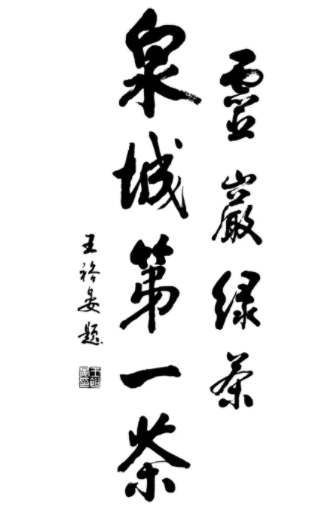 靈巖緑茶
泉城第一茶
王裕晏题